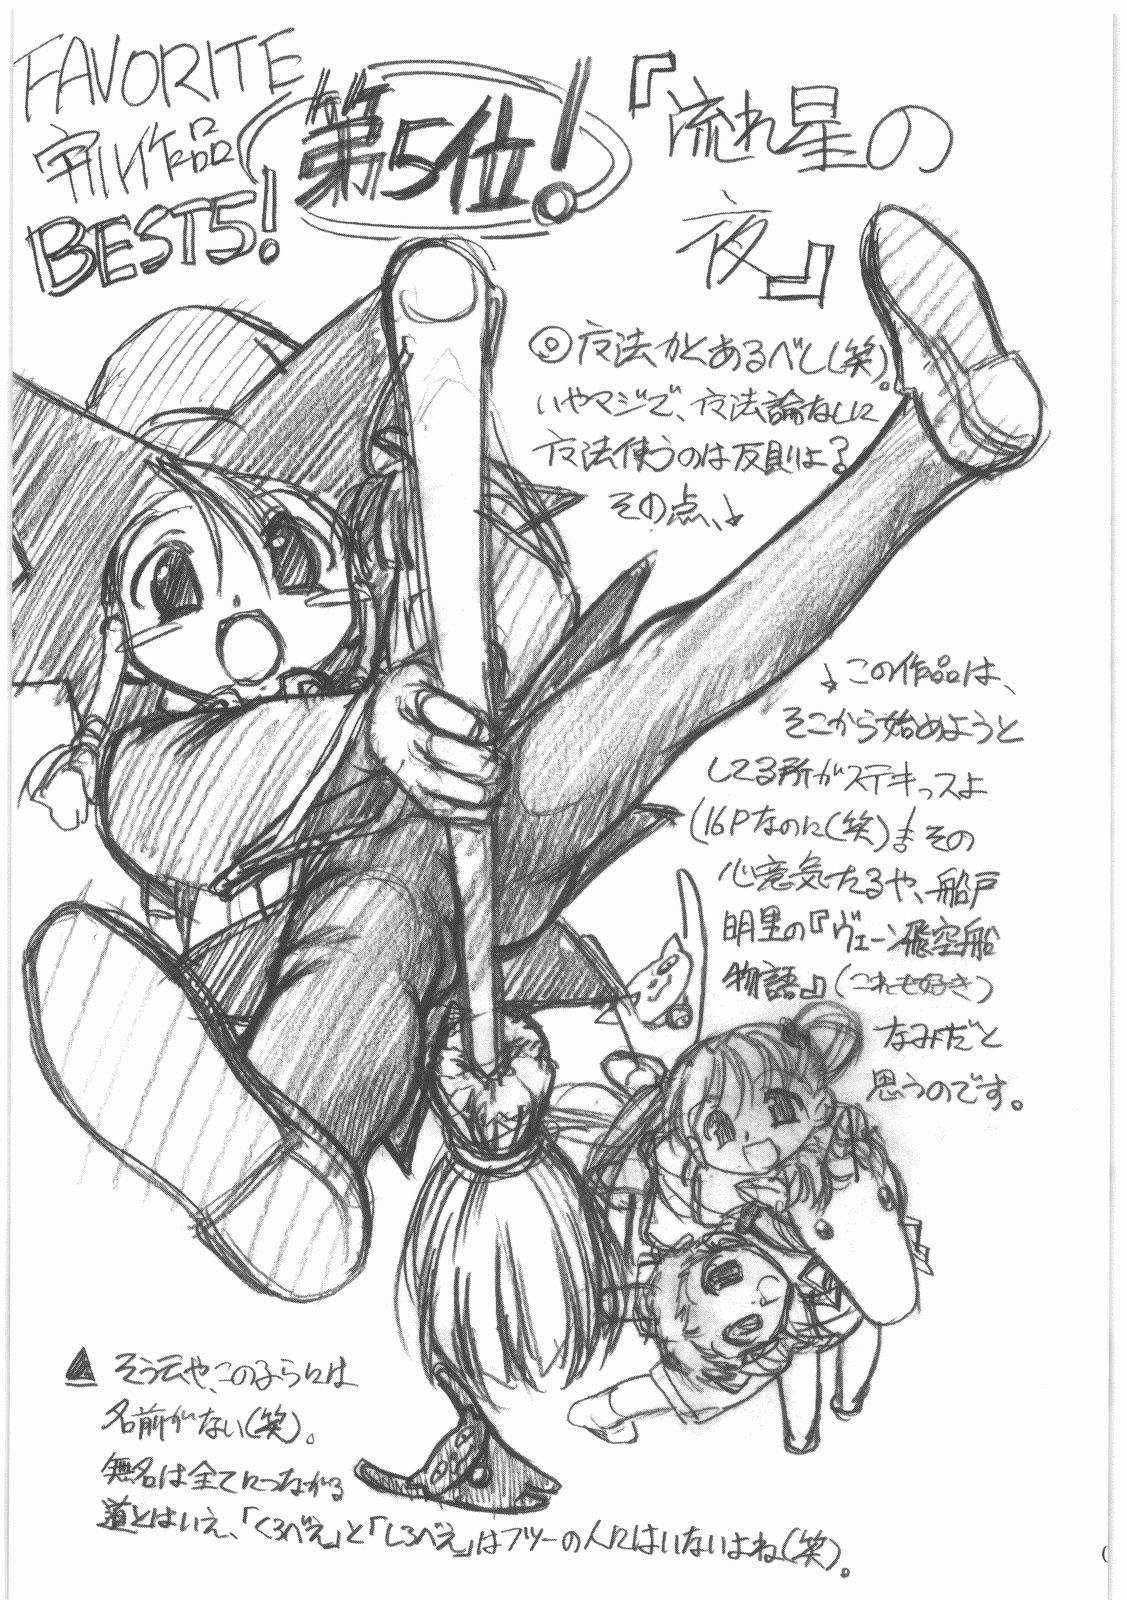 FAVORITE
第5位!
作品
BEST5!
『流れ星の
夜』
◎ 法かくあるべし(笑)。
いやマジで、法論なしに
法使うのは反則よ?
その点、↓
↓この作品は、
そこから始めようと
してる所がステキっスよ
(16Pなのに(笑)まその
心意気たるや、船戸
明里の『ヴェーン飛空船
物語』(これも好き)
なみだと
思うのです。
▲ そう云や、このふらには
名前がない(笑)。
無名は全てにつながる
道とはいえ、「くろべえ」と「しろべえ」はフツーの人にはいないよね(笑)。